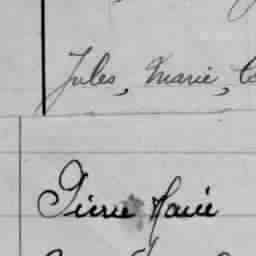 Jules, Marie,
Pierre Marie